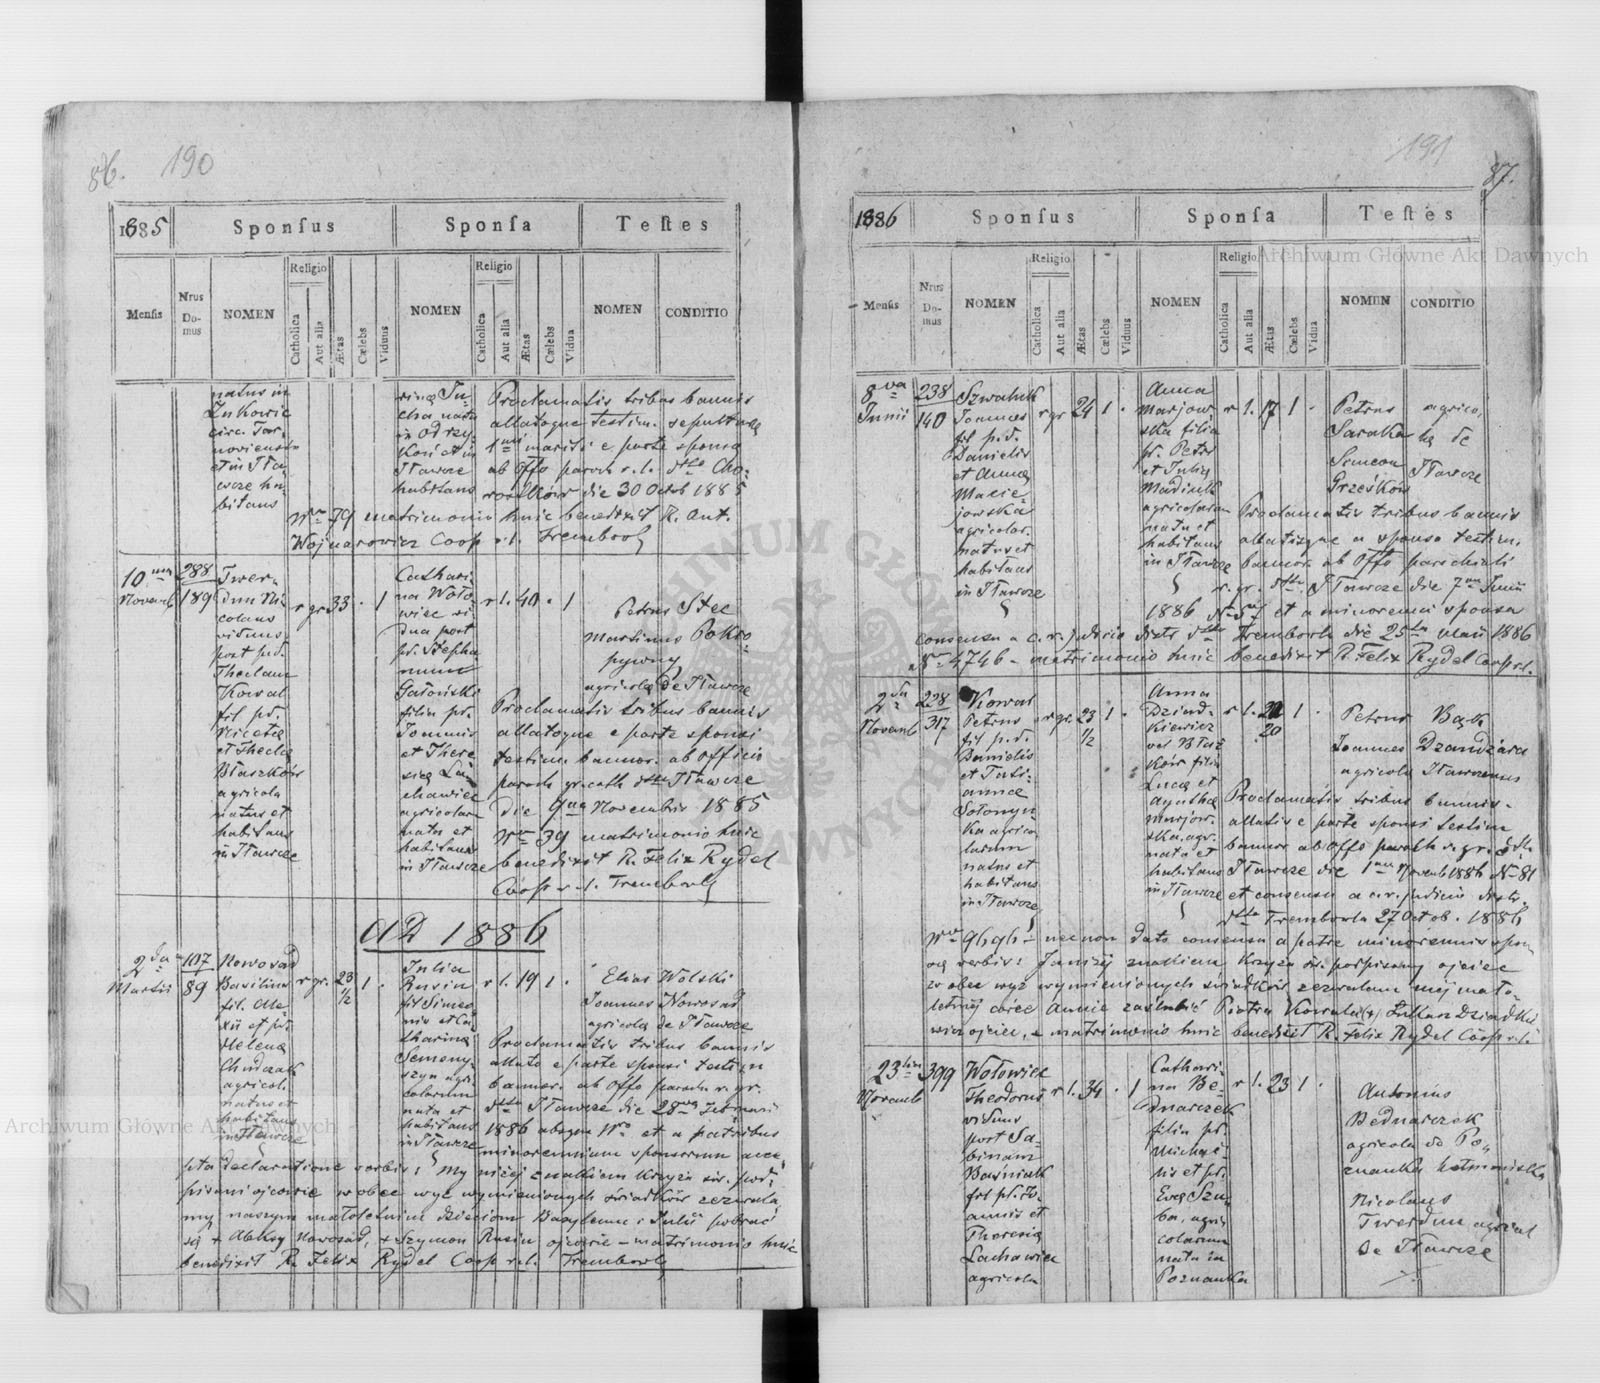 86. 190
1885
Sponsus
Sponsa
Testes
Mensis
Nrus Domus
NOMEN
Religio
Catholica
Aut alia
Ætas
Cœlebs
Viduus
NOMEN
Religio
Catholica
Aut alia
Ætas
Cœlebs
Vidua
NOMEN
CONDITIO
natus in
Żukowic
circ. Tar-
noviensi
et in Iła-
wcze ha-
bitans
rina Su-
cha nata
in Odrzy-
koń et in
Iławcze
habitans
Proclamatis tribus bannis
allatoque testim. sepulturae
1mi mariti e parte sponsa
ab Offo paroch r. l. dtto Cho-
die 30 Octob 1885
Nro 79 matrimonio huic benedixit R. Ant.
Wojnarowicz Coop r. l. Trembowla
10ma
Novemb
288
189
Twer-
dun Ni-
colaus
viduus
post pd.
Theclam
Kowal
fil pd.
Nicetae
et Theclae
Błaszków
agricola
natus et
habitans
in Iławcze
r gr 33 . 1
Cathari-
na Woło-
wiec vi-
dua post
pd. Stepha
num
Gatoński
filia pd.
Joannis
et There
siae La-
chowiec
agricolarum
nata et
habitans
in Iławcze
r l. 40 . 1
Petrus Stec
Martinus Pokro-
pywny
agricolae de Iławcze
Proclamatis tribus bannis
allatoque e parte sponsi
testim. bannor. ab officio
paroch gr. cath dtto Iławcze
die 9na Novembris 1885
Nro 39 matrimonio huic
benedixit R. Felix Rydel
Coop r. l. Trembowla
AD 1886
2da
Martii
107
89
Nowosad
Basilius
fil. Ale-
xii et pd.
Helena
Chudzak
agricol.
natus et
habitans
in Iławcze
r gr. 23 1/2 1 .
Julia
Rusin
fil Simeo
nis et Ca-
tharina
Semeny-
szyn agri-
colarum
nata et
habitans
in Iławcze
r l. 19 1 .
Elias Wolski
Joannes Nowosad
agricolae de Iławcze
Proclamatis tribus bannis
allato e parte sponsi testim
bannor. ab Offo paroch r. gr.
dtto Iławcze die 28va Februarii
1886 absque Nro et a patribus
minorennium sponsorum acce-
pta declaratione verbis: My niżej znakiem krzyża św. pod-
pisani ojcowie wobec wyż wymienionych świadków zezwala
my naszym małoletnim dzieciom Bazylemu i Julii pobrać
się + Aleksy Nowosad, + Szymon Rusin ojcowie – matrimonio huic
benedixit R. Felix Rydel Coop r. l. Trembowla
191
87.
1886
Sponsus
Sponsa
Testes
Mensis
Nrus Domus
NOMEN
Religio
Catholica
Aut alia
Ætas
Cœlebs
Viduus
NOMEN
Religio
Catholica
Aut alia
Ætas
Cœlebs
Vidua
NOMEN
CONDITIO
8va
Junii
238
140
Szwaluk
Joannes
fil p. d.
Danielis
et Anna
Macie-
jowska
agricolar.
natus et
habitans
in Iławcze
r gr 24 1 .
Anna
Marjow-
ska filia
pd. Petri
et Julia
Madiuk
agricolarum
nata et
habitans
in Iławcze
r l. 17 1 .
Petrus
Saraka
Semeon
Grześków
agrico-
lae de
Iławcze
Proclamatis tribus bannis
allatisque a sponso testim.
bannor. ab Offo parochiali
r. gr. dtto Iławcze die 7ma Junii
1886 et a minorenni sponsa
consensu a c. r. judicio distr dtto Trembowla die 25ta Maii 1886
Nro 4746 – matrimonio huic benedixit R. Felix Rydel Coop r. l.
2da
Novemb
228
317
Kowal
Petrus
fil p. d.
Danielis
et Tati-
annae
Sołonyn-
ka agrico
larum
natus et
habitans
in Iławcze
r gr. 23 1/2 1 .
Anna
Dziad-
kiewicz
vel Błaż
ków filia
Lucae et
Agatha
Marjow-
ska, agr.
nata et
habitans
in Iławcze
r l. 20 1 .
Petrus Bąk
Joannes Dzandzara
agricolae Iławcenses
Proclamatis tribus bannis
allatis e parte sponsi testim
bannor ab Offo paroch r. gr. dtto
Iławcze die 1ma Novemb 1886 Nro 81
et consensu a c. r. judicii distr.
dtto Trembowla 27 Octob. 1886
Nro 9696 – necnon dato consensu a patre minorennis spon
sae verbis: Ja niżej znakiem krzyża św. podpisany ojciec
wobec wyż wymienionych świadków zezwalam mej mało-
letniej córce Annie zaślubić Piotra Kowala (+) Łukasz Dziadkie
wicz ojciec, – matrimonio huic benedixit R. Felix Rydel Coop r. l.
23tia
Novemb
399
Wołowiec
Theodorus
viduus
post Sa-
binam
Baśniak
fil pd. Jo-
annis et
Theresia
Lachowiec
agricola
r l. 34 . 1
Cathari-
na Be-
dnarczek
filia pd.
Michae-
lis et pd.
Eva Szu-
ba, agri-
colarum
nata in
Poznanka
r l. 23 1 .
Antonius
Bednarczek
agricola de Po-
znanka hetmańska
Nicolaus
Twerdun agricol
de Iławcze
Archiwum Główne Akt Dawnych
Archiwum Główne Akt Dawnych
ARCHIWUM GŁÓWNE AKT DAWNYCH